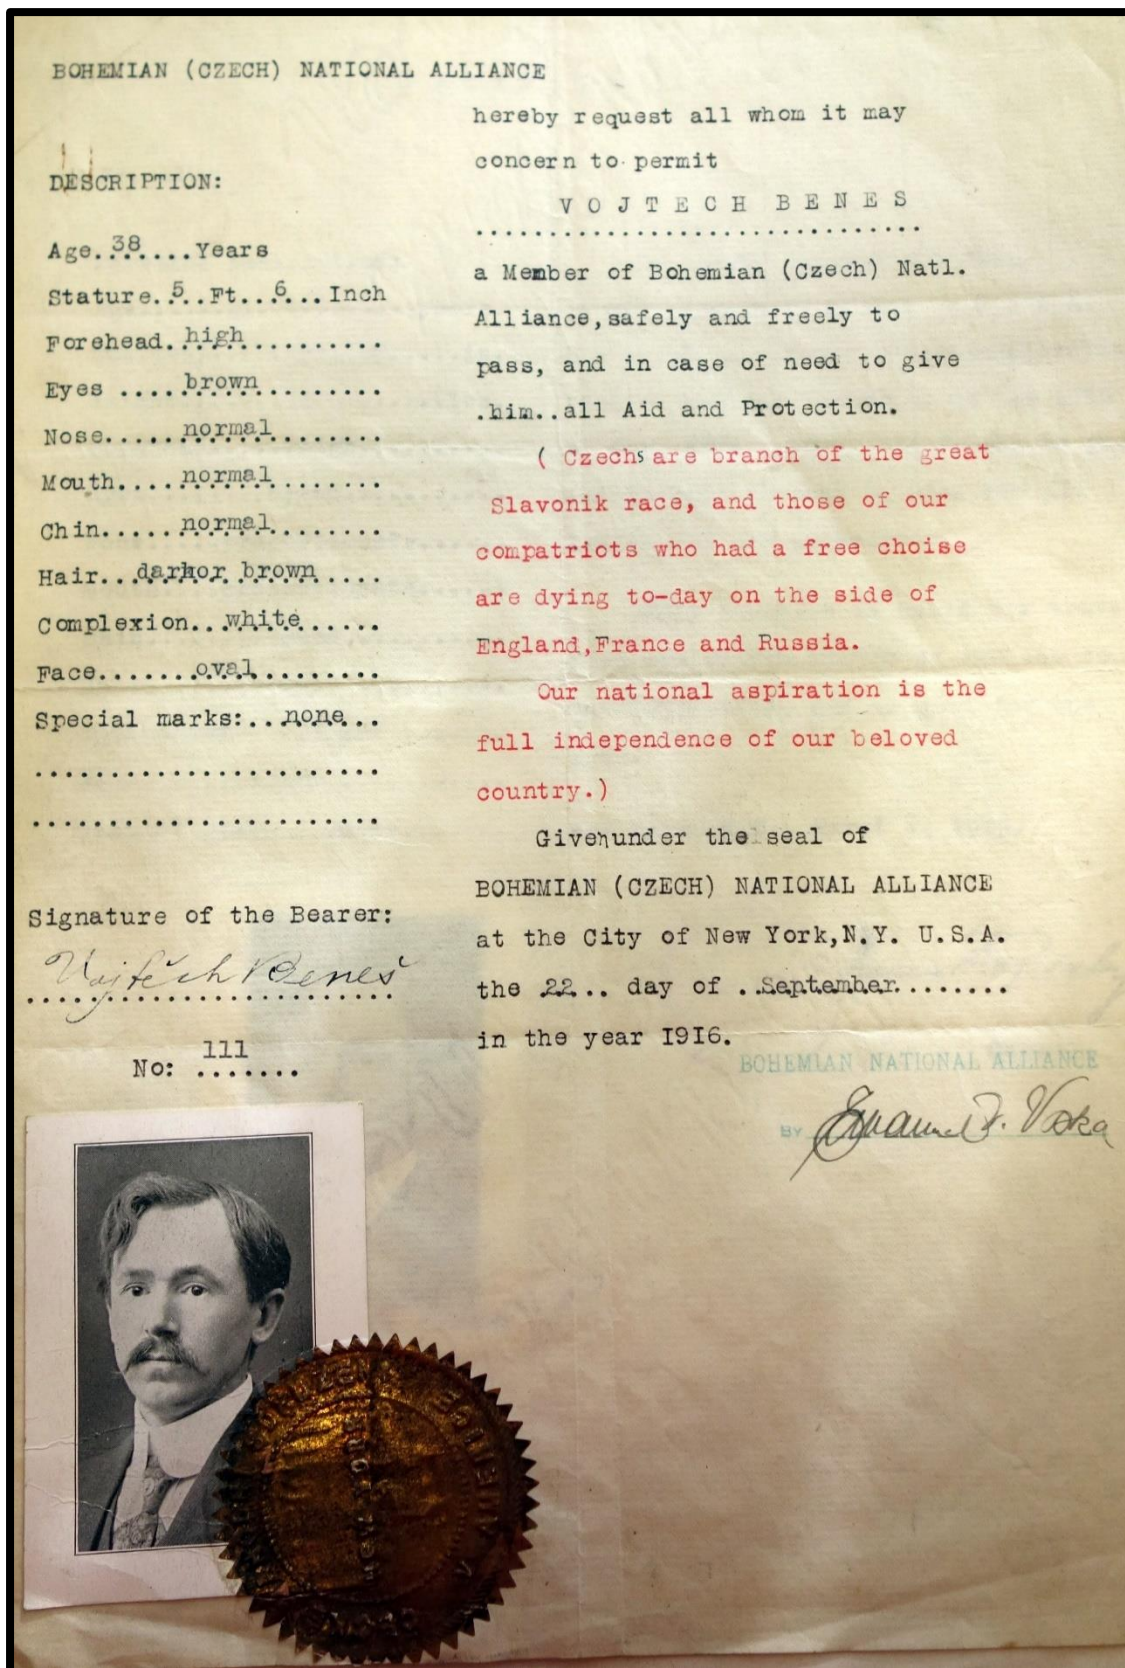 BOHEMIAN (CZECH) NATIONAL ALLIANCE
DESCRIPTION:
Age..38....Years
Stature..5..Ft...6...Inch
Forehead..high..........
Eyes ....brown..........
Nose.....normal.........
Mouth....normal.........
Chin.....normal.........
Hair...darkor brown.....
Complexion...white......
Face.......oval.........
Special marks:..none...
.......................
.......................
Signature of the Bearer:
Vojtěch Beneš
No: 111
hereby request all whom it may
concern to permit
VOJTECH BENES
a Member of Bohemian (Czech) Natl.
Alliance,safely and freely to
pass, and in case of need to give
.him..all Aid and Protection.
( Czechs are branch of the great
Slavonik race, and those of our
compatriots who had a free choise
are dying to-day on the side of
England,France and Russia.
Our national aspiration is the
full independence of our beloved
country.)
Givenunder the seal of
BOHEMIAN (CZECH) NATIONAL ALLIANCE
at the City of New York,N.Y. U.S.A.
the 22.. day of ..September.......
in the year I9I6.
BOHEMIAN NATIONAL ALLIANCE
BY Emanuel F. Voska